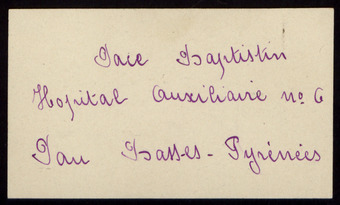 Pace Baptistin
Hopital Auxiliaire no 6
Pau Basses-Pyrénées